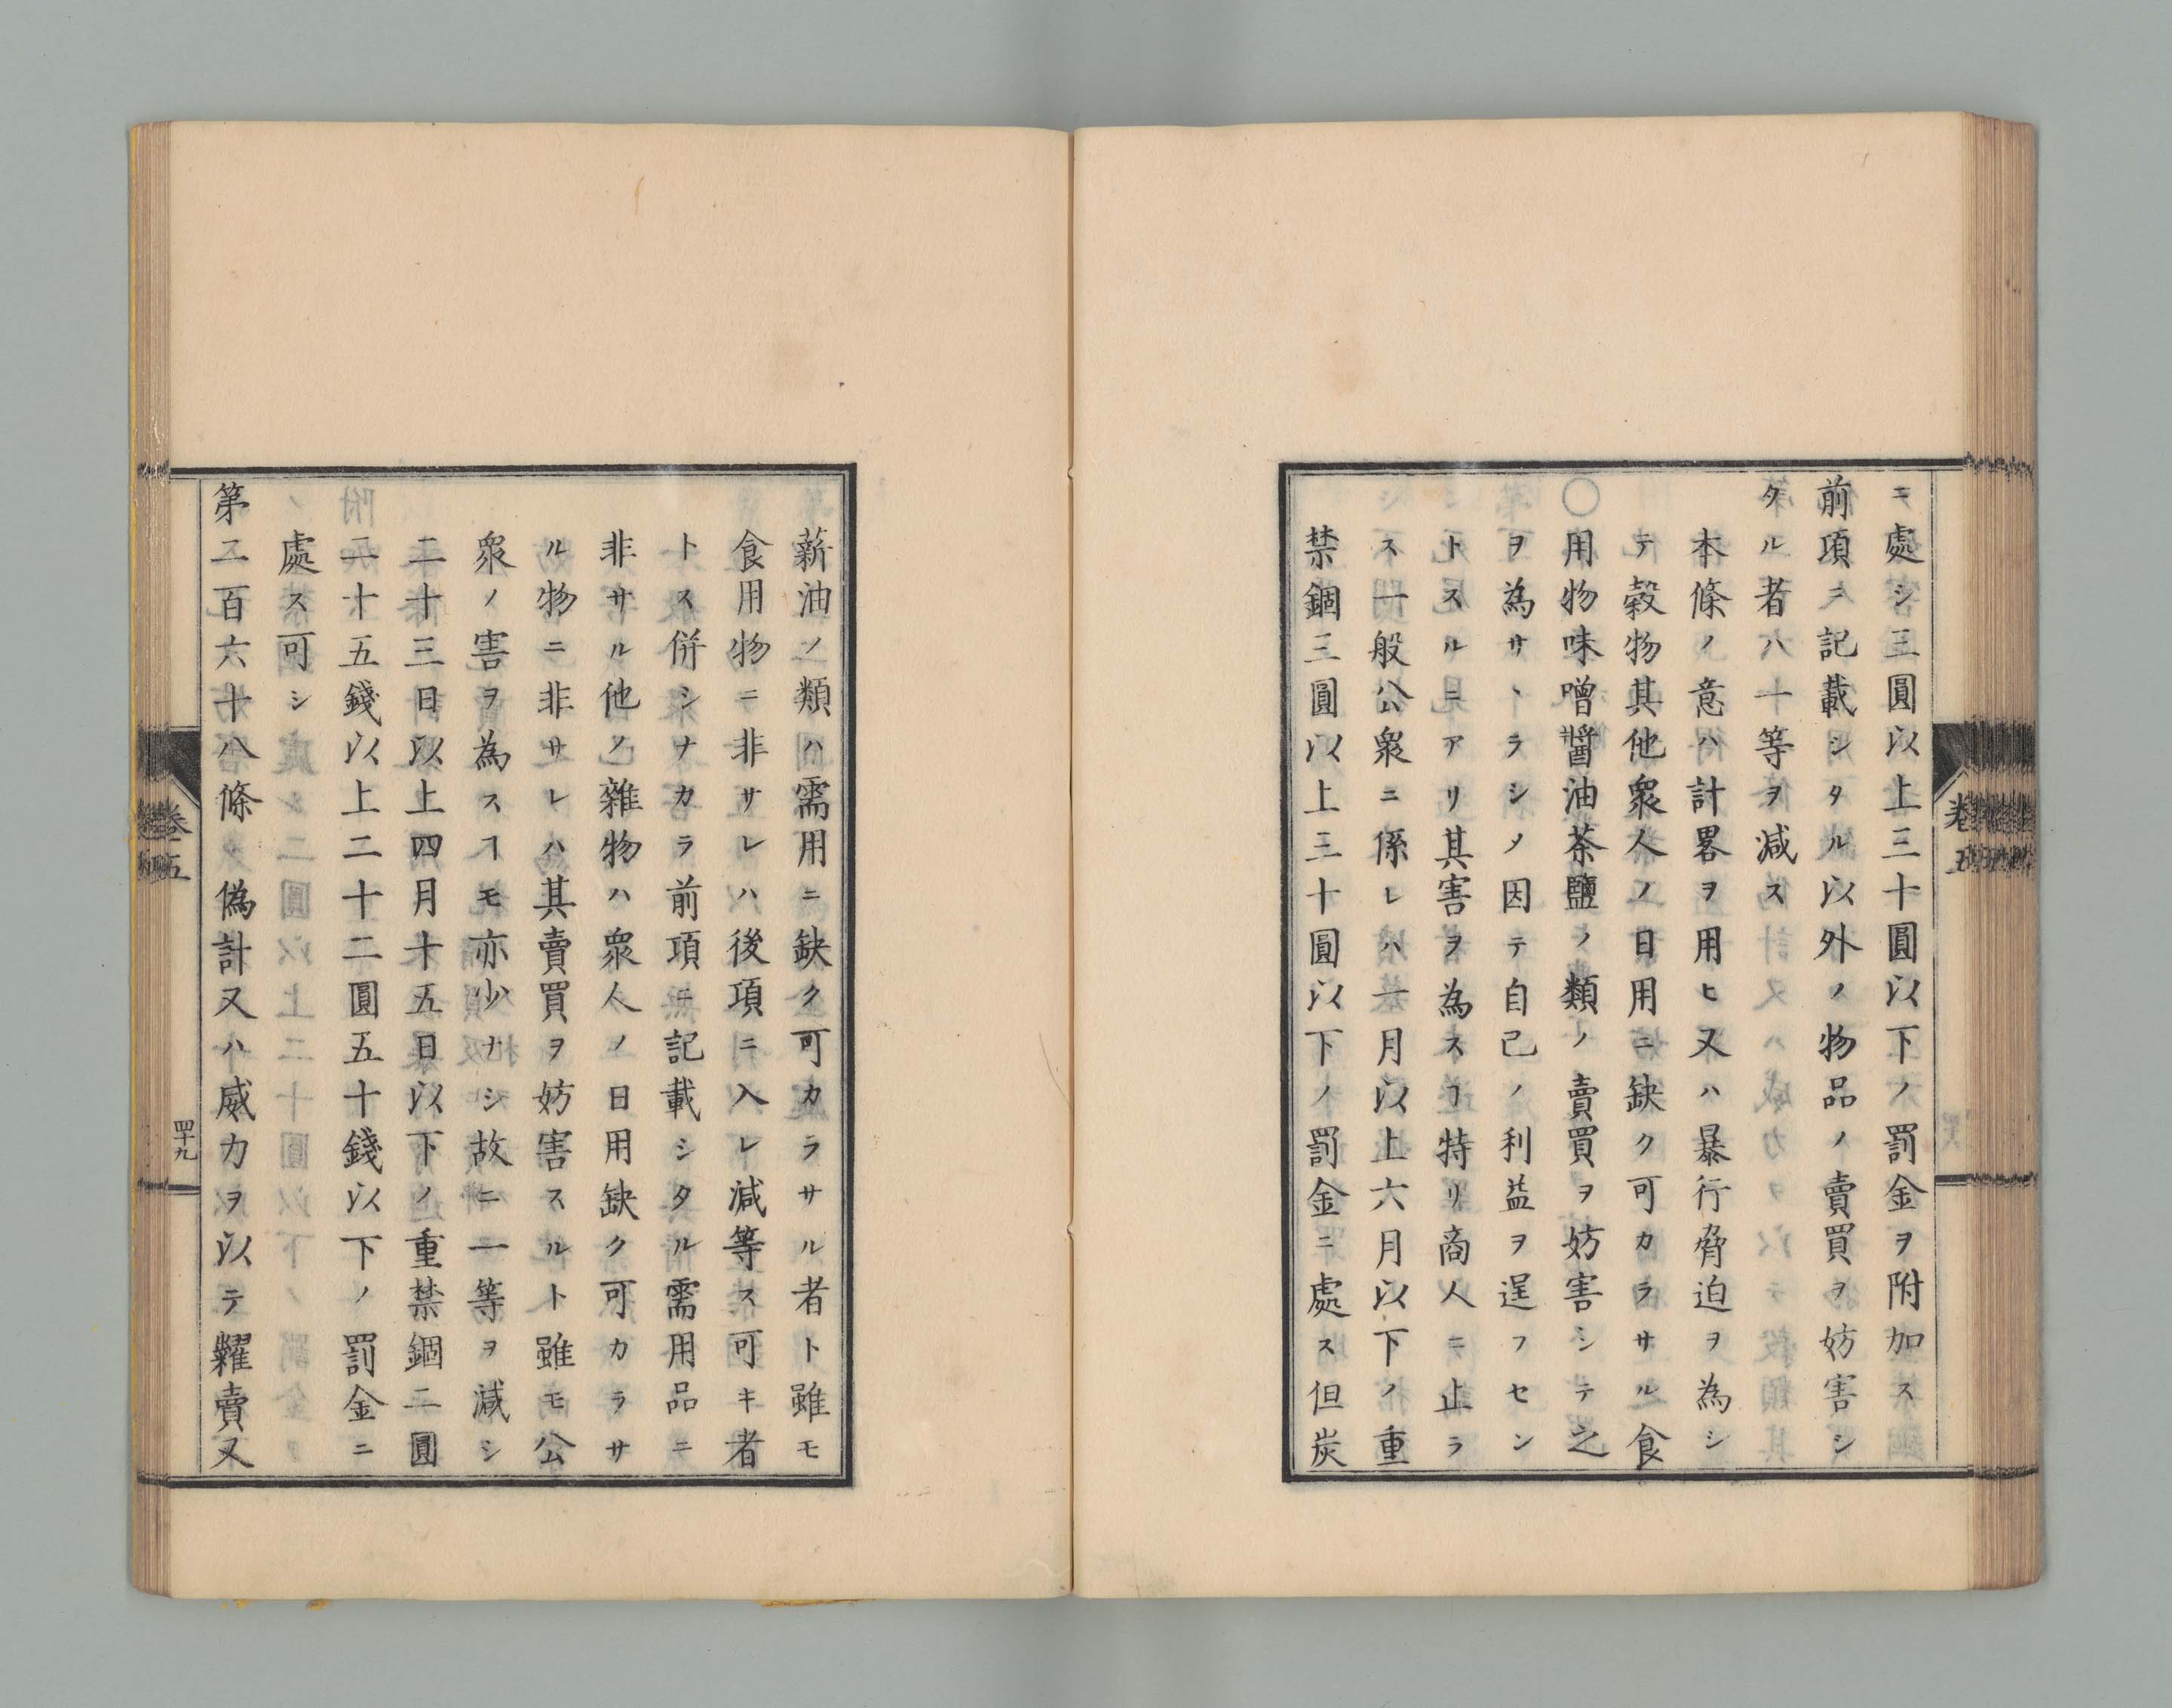 ニ處シ三圓以上三十圓以下ノ罰金ヲ附加ス
前項ニ記載シタル以外ノ物品ノ賣買ヲ妨害シ
タル者ハ一等ヲ減ス
本條ノ意ハ計畧ヲ用ヒ又ハ暴行脅迫ヲ為シ
テ穀物其他衆人ノ日用ニ缺ク可カラサル食
〇用物味噌醬油茶鹽ノ類ノ賣買ヲ妨害シテ之
ヲ為サヽラシメ因テ自己ノ利益ヲ逞フセン
トスルニアリ其害ヲ為スヿ特リ商人ニ止ラ
ス一般公衆ニ係レハ一月以上六月以下ノ重
禁錮三圓以上三十圓以下ノ罰金ニ處ス但炭
薪油ノ類ハ需用ニ缺ク可カラサル者ト雖モ
食用物ニ非サレハ後項ニ入レ減等ス可キ者
トス併シナカラ前項ニ記載シタル需用品ニ
非サル他ノ雜物ハ衆人ノ日用缺ク可カラサ
ル物ニ非サレハ其賣買ヲ妨害スルト雖モ公
衆ノ害ヲ為スヿモ亦少ナシ故ニ一等ヲ減シ
二十三日以上四月十五日以下ノ重禁錮二圓
二十五錢以上二十二圓五十錢以下ノ罰金ニ
處ス可シ
第二百六十八條　偽計又ハ威力ヲ以テ糶賣又
卷五
四十九
卷五